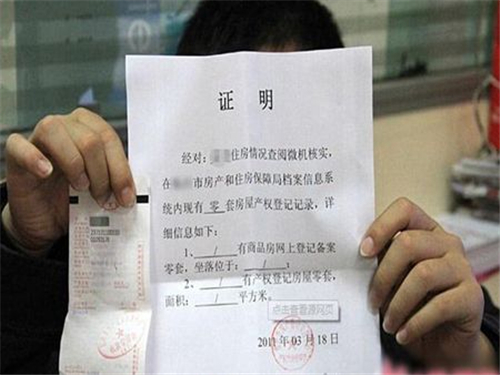 证 明
经对: 住房情况查阅微机核实,
在 市房产和住房保障局档案信息系
统内现有 零 套房屋产权登记记录, 详
细信息如下:
1、 / 有商品房网上登记备案
零套, 坐落位于: / ;
2、 / 有产权登记房屋零套,
面积: / 平方米。
点击查看源网页
2011 年 03 月 18 日